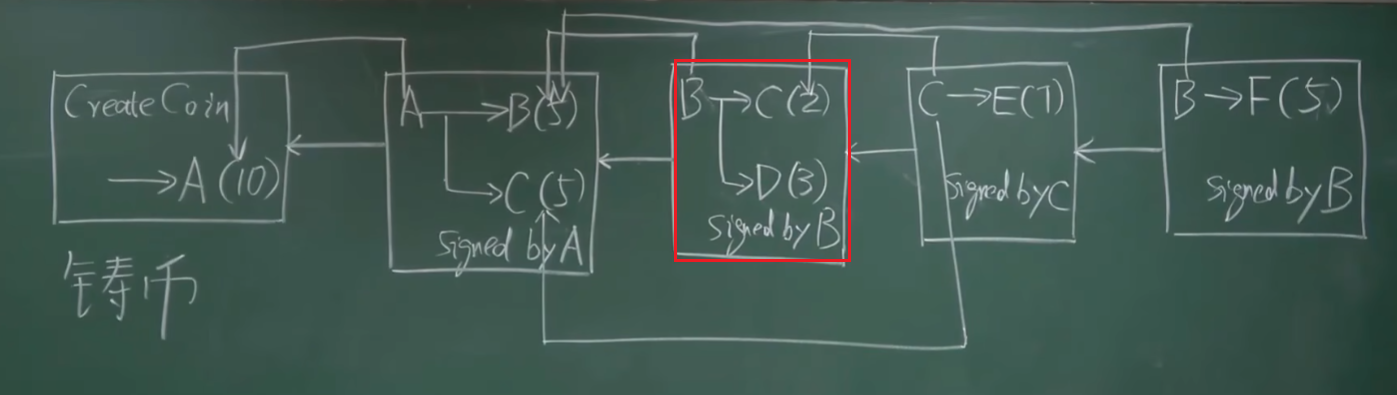 Create Coin
→A(10)
铸币
A→B(5)
→C(5)
Signed by A
B→C(2)
→D(3)
Signed by B
C→E(7)
Signed by C
B→F(5)
Signed by B